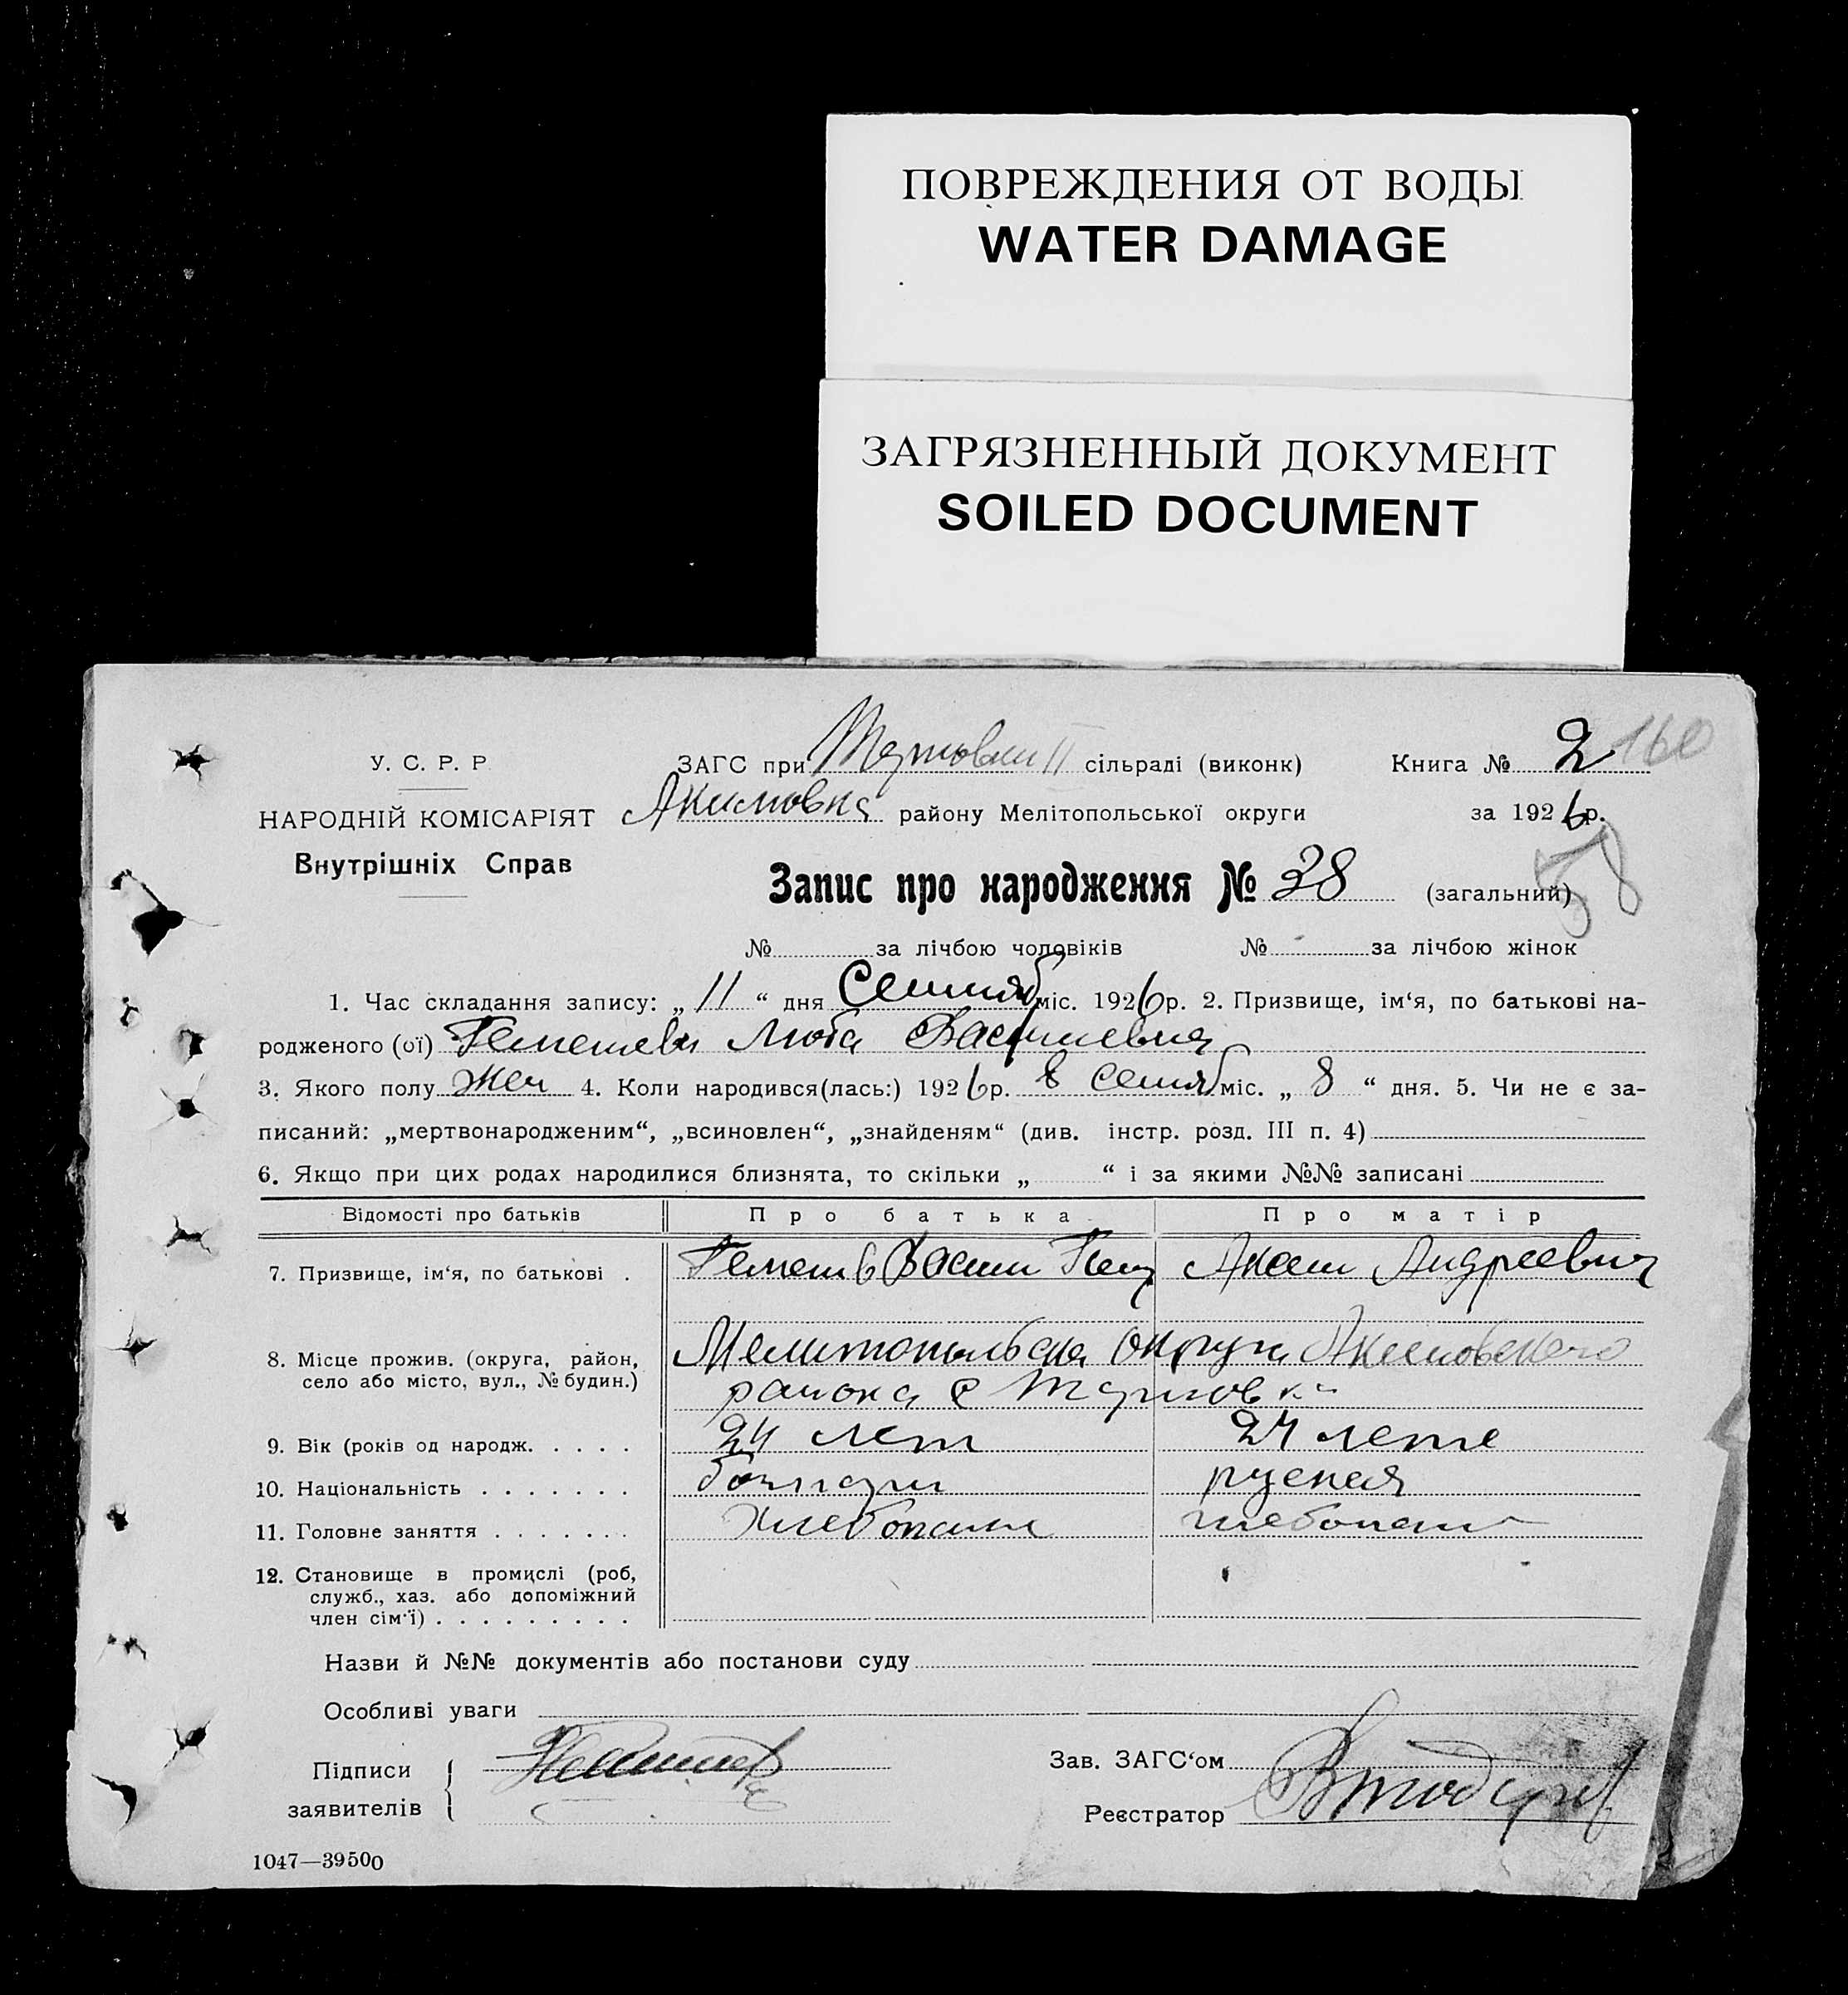 ПОВРЕЖДЕНИЯ ОТ ВОДЫ
WATER DAMAGE
ЗАГРЯЗНЕННЫЙ ДОКУМЕНТ
SOILED DOCUMENT
У. С. Р. Р. ЗАГС при II сільраді (виконк) Книга № 2 160
НАРОДНІЙ КОМІСАРІЯТ Акимовка району Мелітопольської округи за 1926 р.
Внутрішніх Справ
Запис про народження № 38 (загальний) 38
№ за лічбою чоловіків № за лічбою жінок
1. Час складання запису: „ 11 “ дня Сентяб міс. 1926 р. 2. Призвище, ім‘я, по батькові на-
родженого (ої) Люба Васильевна
3. Якого полу жен 4. Коли народився(лась:) 1926 р. 8 Сентяб міс. „ 8 “ дня. 5. Чи не є за-
писаний: „мертвонародженим“, „всиновлен“, „знайденям“ (див. інстр. розд. III п. 4)
6. Якщо при цих родах народилися близнята, то скільки „ “ і за якими №№ записані
Відомості про батьків Про батька Про матір
7. Призвище, ім‘я, по батькові . Васил Андреевна
8. Місце прожив. (округа, район, Мелитопольска округа Акимовского
село або місто, вул., № будин.) района с
9. Вік (років од народж. . . . . 24 лет 24 лете
10. Національність . . . . . . . болгари руская
11. Головне заняття . . . . . . . Хлебопаше хлебопаш
12. Становище в промислі (роб,
служб., хаз. або допоміжний
член сім‘ї) . . . . . . . . .
Назви й №№ документів або постанови суду
Особливі уваги
Підписи Зав. ЗАГС‘ом
заявителів Реєстратор
1047—39500